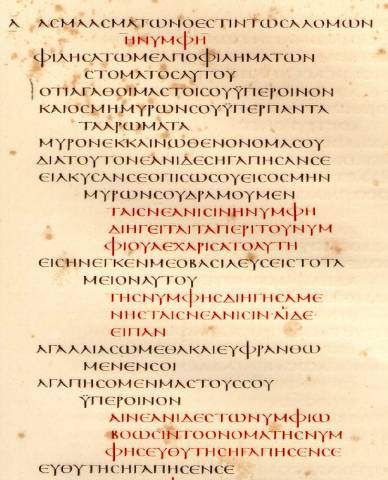 Α ΑСΜΑΑСΜΑΤωΝΟЄСΤΙΝΤωСΑΛΟΜωΝ
ΗΝΥΜΦΗ
ΦΙΛΗСΑΤωΜЄΑΠΟΦΙΛΗΜΑΤωΝ
СΤΟΜΑΤΟСΑΥΤΟΥ
ΟΤΙΑΓΑΘΟΙΜΑСΤΟΙСΟΥΫΠЄΡΟΙΝΟΝ
ΚΑΙΟСΜΗΜΥΡωΝСΟΥΫΠЄΡΠΑΝΤΑ
ΤΑΑΡωΜΑΤΑ
ΜΥΡΟΝЄΚΚΑΙΝωΘЄΝΟΝΟΜΑСΟΥ
ΔΙΑΤΟΥΤΟΝЄΑΝΙΔЄСΗΓΑΠΗСΑΝСЄ
ЄΙΛΚΥСΑΝСЄΟΠΙСωСΟΥЄΙСΟСΜΗΝ
ΜΥΡωΝСΟΥΔΡΑΜΟΥΜЄΝ
ΤΑΙСΝЄΑΝΙСΙΝΗΝΥΜΦΗ
ΔΙΗΓЄΙΤΑΙΤΑΠЄΡΙΤΟΥΝΥΜ
ΦΙΟΥΑЄΧΑΡΙСΑΤΟΑΥΤΗ
ЄΙСΗΝЄΓΚЄΝΜЄΟΒΑСΙΛЄΥСЄΙСΤΟΤΑ
ΜЄΙΟΝΑΥΤΟΥ
ΤΗСΝΥΜΦΗСΔΙΗΓΗСΑΜЄ
ΝΗСΤΑΙСΝЄΑΝΙСΙΝ·ΑΙΔЄ·
ЄΙΠΑΝ
ΑΓΑΛΛΙΑСωΜЄΘΑΚΑΙЄΥΦΡΑΝΘω
ΜЄΝЄΝСΟΙ
ΑΓΑΠΗСΟΜЄΝΜΑСΤΟΥССΟΥ
ΫΠЄΡΟΙΝΟΝ
ΑΙΝЄΑΝΙΔЄСΤωΝΥΜΦΙω
ΒΟωСΙΝΤΟΟΝΟΜΑΤΗСΝΥΜ
ΦΗСЄΥΘΥΤΗСΗΓΑΠΗСЄΝСЄ
ЄΥΘΥΤΗСΗΓΑΠΗСЄΝСЄ